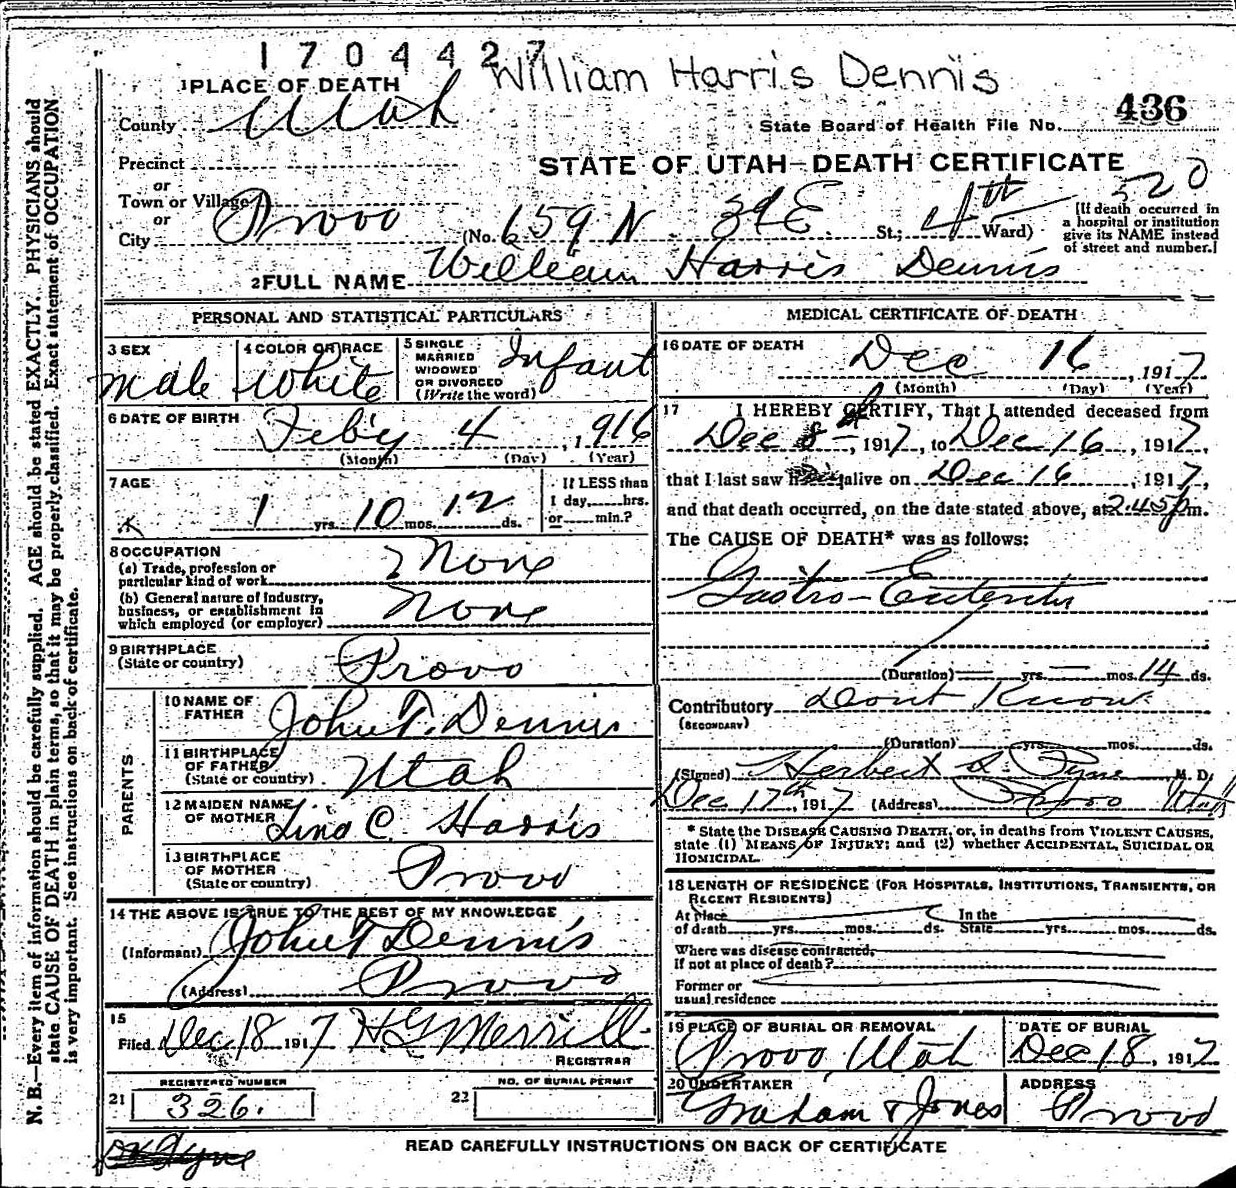 1704427
William Harris Dennis
1 PLACE OF DEATH
County Utah
436
State Board of Health File No.
Precinct
STATE OF UTAH—DEATH CERTIFICATE
or
Town or Village
or
City Provo
520
(No. 659 N. 3d E. St.; 4th Ward)
[If death occurred in a hospital or institution give its NAME instead of street and number.]
2 FULL NAME William Harris Dennis
PERSONAL AND STATISTICAL PARTICULARS
3 SEX
Male
4 COLOR OR RACE
White
5 SINGLE MARRIED WIDOWED OR DIVORCED
(Write the word)
Infant
6 DATE OF BIRTH
Feby 4, 1916
(Month) (Day) (Year)
7 AGE
1 yrs. 10 mos. 12 ds.
If LESS than
1 day, hrs.
or min.?
8 OCCUPATION
(a) Trade, profession or particular kind of work None
(b) General nature of industry, business, or establishment in which employed (or employer) None
9 BIRTHPLACE
(State or country) Provo
PARENTS
10 NAME OF FATHER John T. Dennis
11 BIRTHPLACE OF FATHER
(State or country) Utah
12 MAIDEN NAME OF MOTHER Lina C. Harris
13 BIRTHPLACE OF MOTHER
(State or country) Provo
14 THE ABOVE IS TRUE TO THE BEST OF MY KNOWLEDGE
(Informant) John T Dennis
(Address) Provo
15
Filed Dec 18 1917 H G Merrill
REGISTRAR
REGISTERED NUMBER
21 326.
NO. OF BURIAL PERMIT
22
MEDICAL CERTIFICATE OF DEATH
16 DATE OF DEATH
Dec 16, 1917
(Month) (Day) (Year)
17 I HEREBY CERTIFY, That I attended deceased from
Dec 8, 1917, to Dec 16, 1917,
that I last saw alive on Dec 16, 1917,
and that death occurred, on the date stated above, at 2.45 p m.
The CAUSE OF DEATH* was as follows:
Gastro-Enteritis
(Duration) yrs. mos. 14 ds.
Contributory Dont Know
(SECONDARY)
(Duration) yrs. mos. ds.
(Signed) Herbert S. Pyne M. D.
Dec 17th, 1917 (Address) Provo Utah
* State the DISEASE CAUSING DEATH, or, in deaths from VIOLENT CAUSES, state (1) MEANS OF INJURY; and (2) whether ACCIDENTAL, SUICIDAL OR HOMICIDAL.
18 LENGTH OF RESIDENCE (FOR HOSPITALS, INSTITUTIONS, TRANSIENTS, OR RECENT RESIDENTS)
At place of death yrs. mos. ds. In the State yrs. mos. ds.
Where was disease contracted,
If not at place of death?
Former or usual residence
19 PLACE OF BURIAL OR REMOVAL
Provo, Utah
DATE OF BURIAL
Dec 18, 1917
20 UNDERTAKER
Graham & Jones
ADDRESS
Provo
READ CAREFULLY INSTRUCTIONS ON BACK OF CERTIFICATE
N. B.—Every item of information should be carefully supplied. AGE should be stated EXACTLY. PHYSICIANS should
state CAUSE OF DEATH in plain terms, so that it may be properly classified. Exact statement of OCCUPATION
is very important. See instructions on back of certificate.